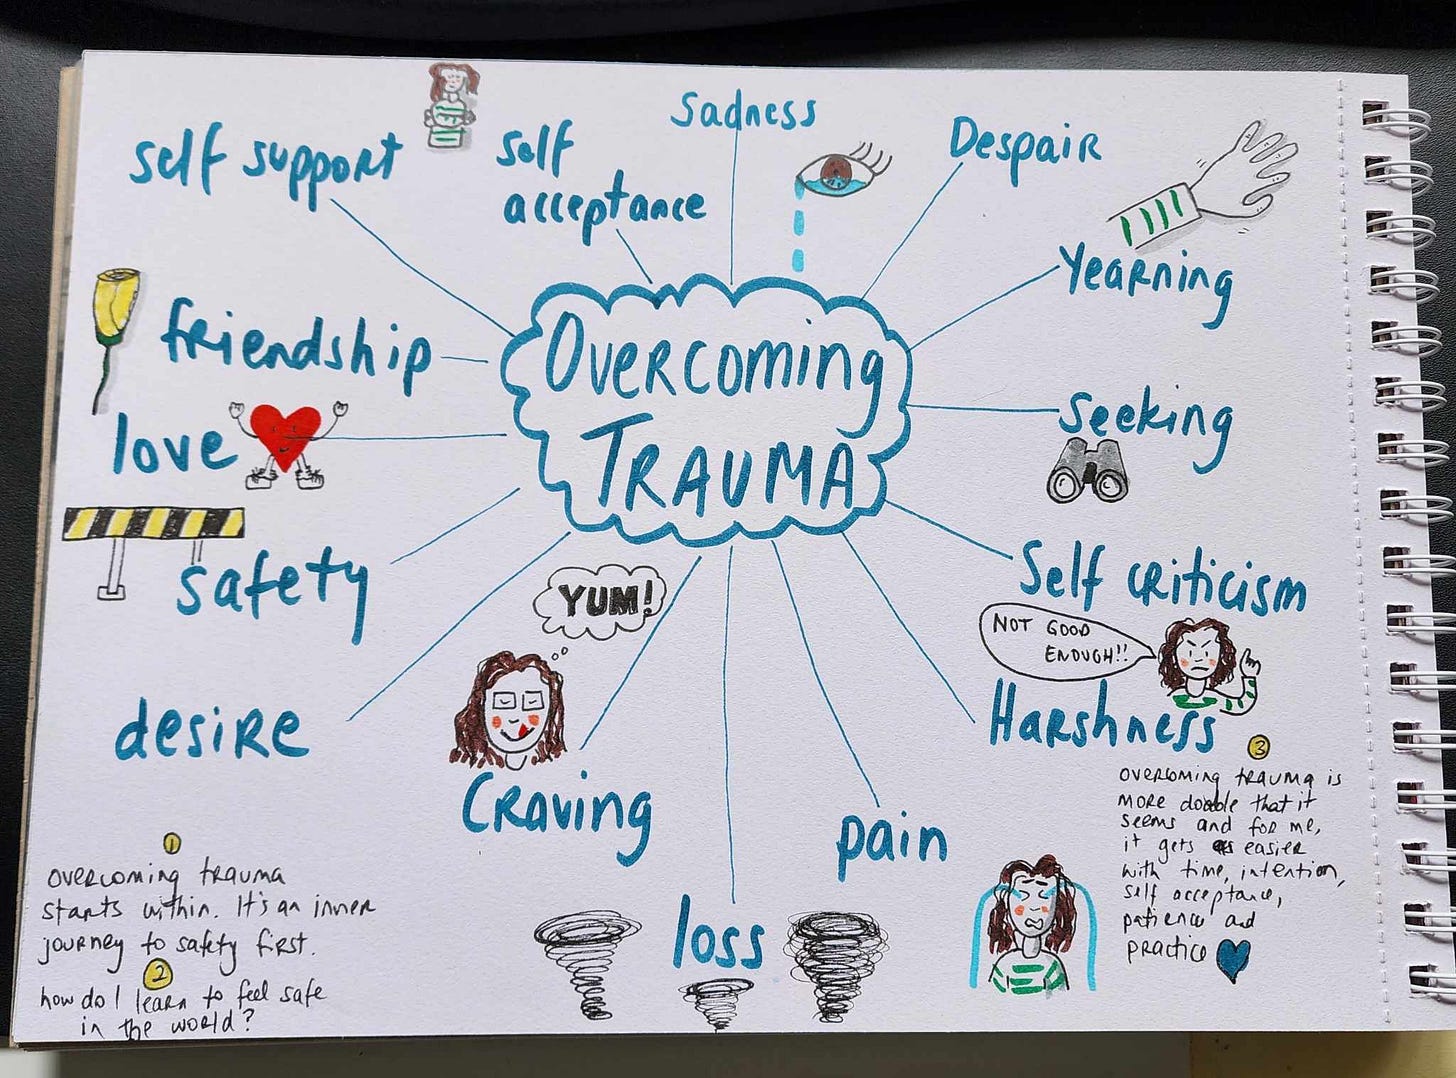 Sadness
self support
self
acceptance
Despair
Yearning
friendship
OVERCOMING
TRAUMA
love
seeking
safety
Self criticism
YUM!
NOT GOOD
ENOUGH!!
desire
Harshness
Craving
pain
loss
1
overcoming trauma
starts within. It's an inner
journey to safety first.
2
how do I learn to feel safe
in the world?
3
overcoming trauma is
more doable that it
seems and for me,
it gets easier
with time, intention,
self acceptance,
patience and
practice